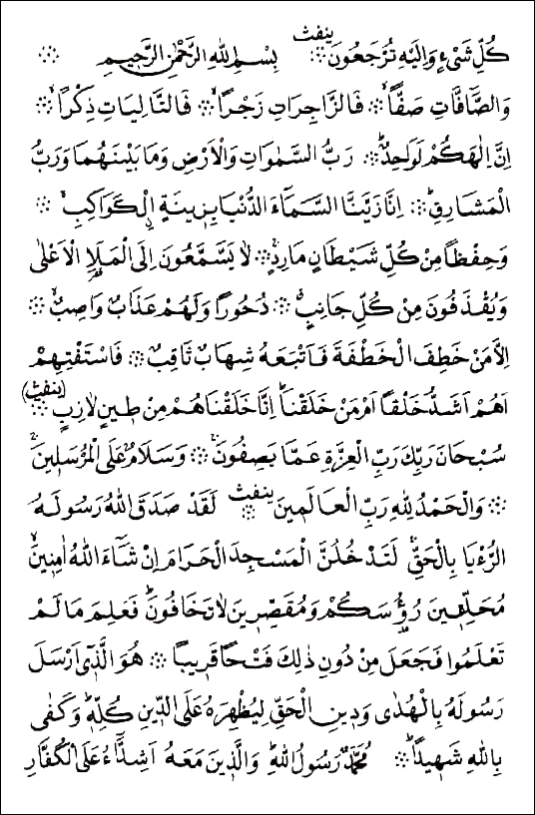 كُلِّ شَىْءٍ وَاِلَيْهِ تُرْجَعُونَ ينفث ۞ بِسْمِ اللهِ الرَّحْمٰنِ الرَّحِيمِ ۞
وَالصَّٓافَّاتِ صَفًّاۙ ۞ فَالزَّاجِرَاتِ زَجْرًاۙ ۞ فَالتَّالِيَاتِ ذِكْرًاۙ ۞
اِنَّ اِلٰهَكُمْ لَوَاحِدٌۜ ۞ رَبُّ السَّمٰوَاتِ وَالْاَرْضِ وَمَا بَيْنَهُمَا وَرَبُّ
الْمَشَارِقِۜ ۞ اِنَّا زَيَّنَّا السَّمَٓاءَ الدُّنْيَا بِزِينَةٍ الْكَوَاكِبِۙ ۞
وَحِفْظًا مِنْ كُلِّ شَيْطَانٍ مَارِدٍۚ ۞ لَا يَسَّمَّعُونَ اِلَى الْمَلَاِ الْاَعْلٰى
وَيُقْذَفُونَ مِنْ كُلِّ جَانِبٍۗ ۞ دُحُورًا وَلَهُمْ عَذَابٌ وَاصِبٌۙ ۞
اِلَّا مَنْ خَطِفَ الْخَطْفَةَ فَاَتْبَعَهُ شِهَابٌ ثَاقِبٌ ۞ فَاسْتَفْتِهِمْ
اَهُمْ اَشَدُّ خَلْقًا اَمْ مَنْ خَلَقْنَاۜ اِنَّا خَلَقْنَاهُمْ مِنْ طِينٍ لَازِبٍ (ينفث) ۞
سُبْحَانَ رَبِّكَ رَبِّ الْعِزَّةِ عَمَّا يَصِفُونَۚ ۞ وَسَلَامٌ عَلَى الْمُرْسَلِينَۚ
۞ وَالْحَمْدُ لِلهِ رَبِّ الْعَالَمِينَ ينفث ۞ لَقَدْ صَدَقَ اللهُ رَسُولَهُ
الرُّءْيَا بِالْحَقِّۚ لَتَدْخُلُنَّ الْمَسْجِدَ الْحَرَامَ اِنْ شَٓاءَ اللهُ اٰمِنِينَۙ
مُحَلِّقِينَ رُؤُ۫سَكُمْ وَمُقَصِّرِينَ لَا تَخَافُونَۜ فَعَلِمَ مَا لَمْ
تَعْلَمُوا فَجَعَلَ مِنْ دُونِ ذٰلِكَ فَتْحًا قَرِيبًا ۞ هُوَ الَّذِٓى اَرْسَلَ
رَسُولَهُ بِالْهُدٰى وَدِينِ الْحَقِّ لِيُظْهِرَهُ عَلَى الدِّينِ كُلِّهِۜ وَكَفٰى
بِاللهِ شَهِيدًاۜ ۞ مُحَمَّدٌ رَسُولُ اللهِۜ وَالَّذِينَ مَعَهُٓ اَشِدَّٓاءُ عَلَى الْكُفَّارِ